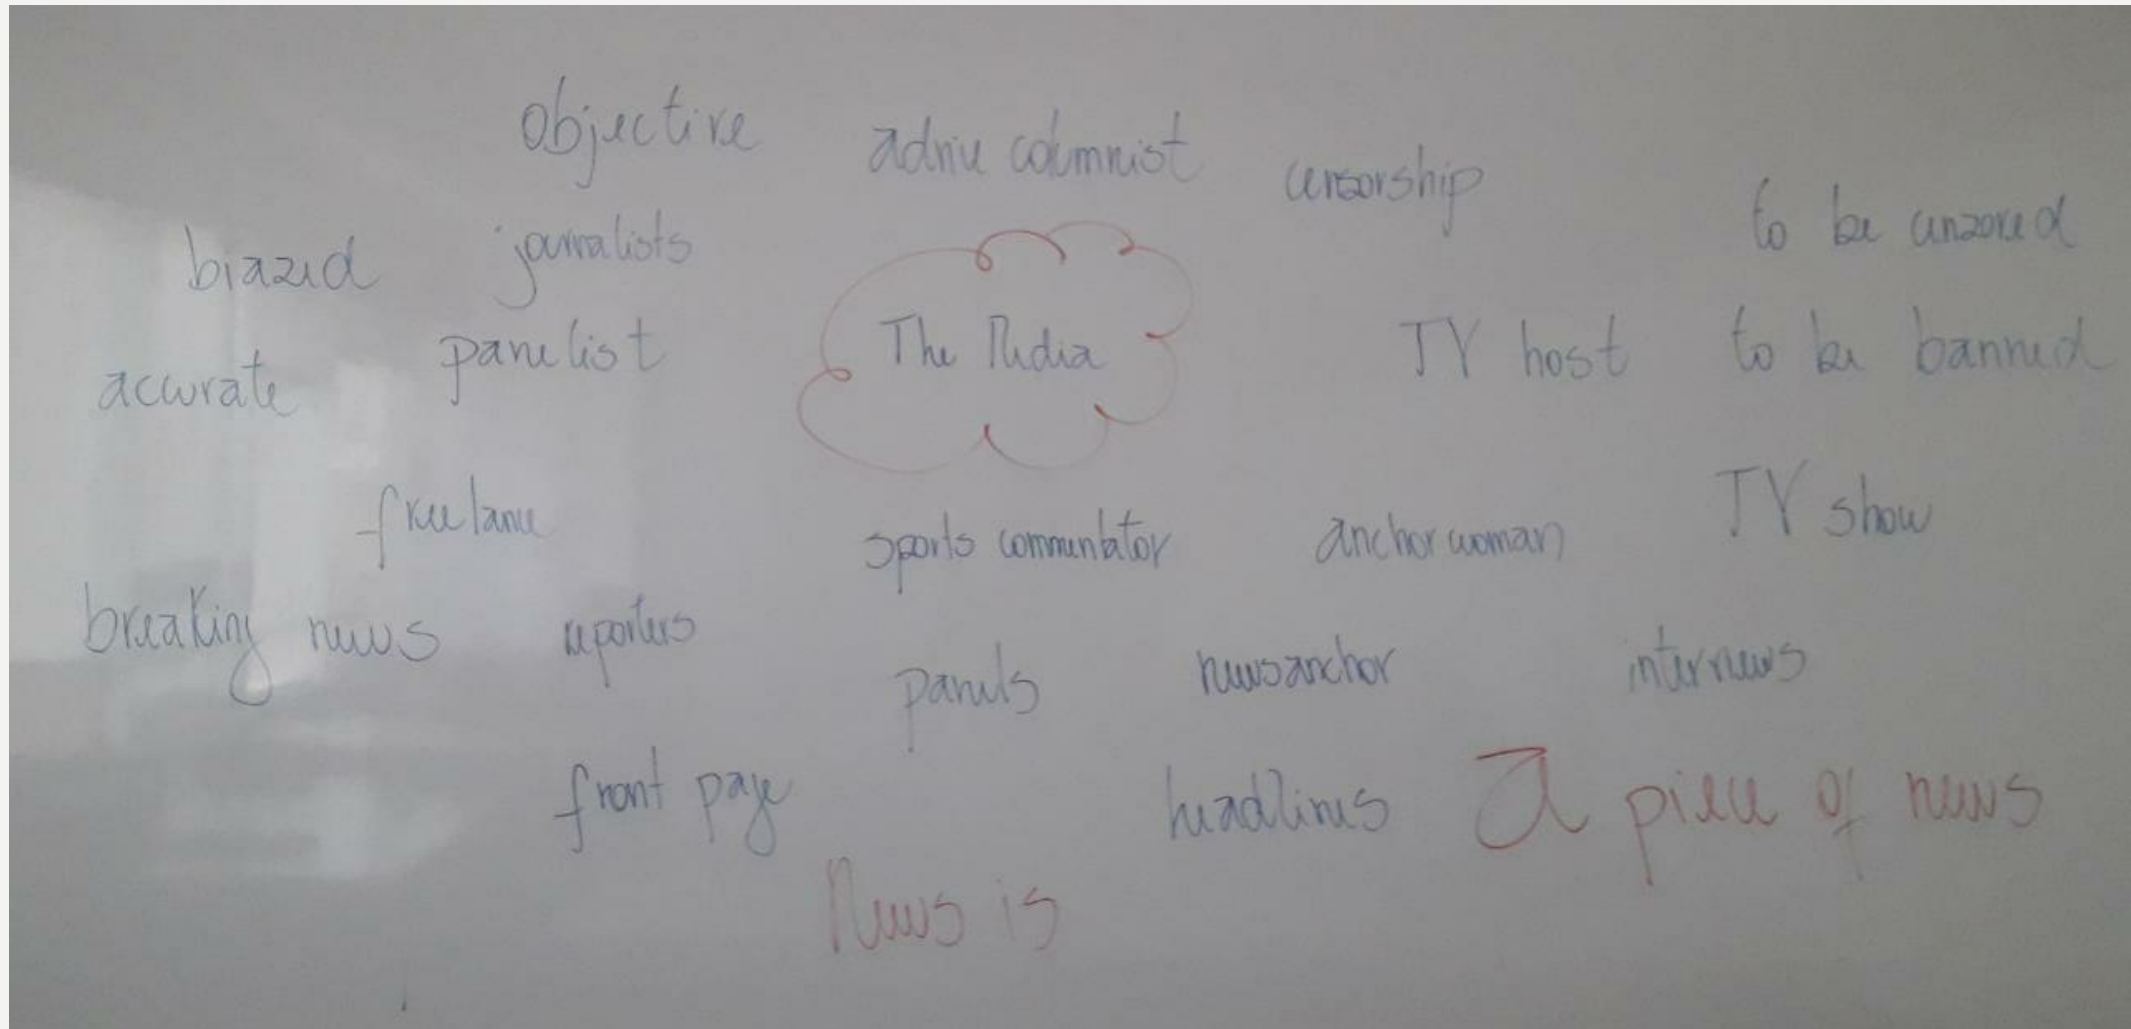 objective
advice columnist
censorship
to be cenzored
biazed
journalists
The Media
TV host
to be banned
accurate
panelist
freelance
sports commentator
anchorwoman
TV show
breaking news
reporters
panels
newsanchor
internews
front page
headlines
A piece of news
News is